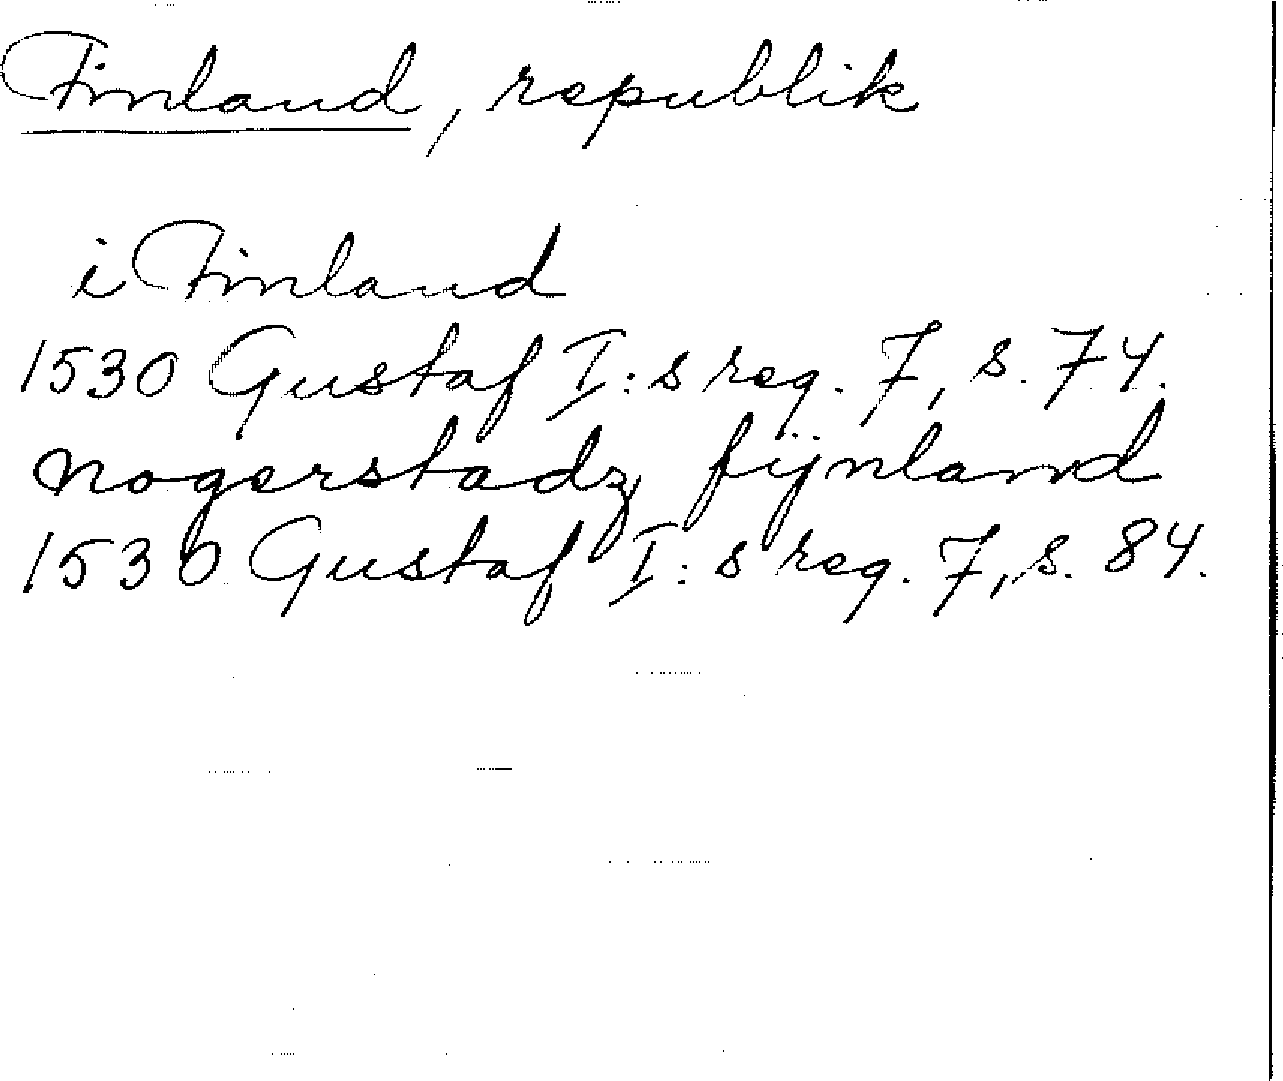 Finland, republik
i Finland
1530 Gustaf I:s reg. 7, s. 74.
Nogerstadz fijnland
1530 Gustaf I:s reg. 7, s. 84.